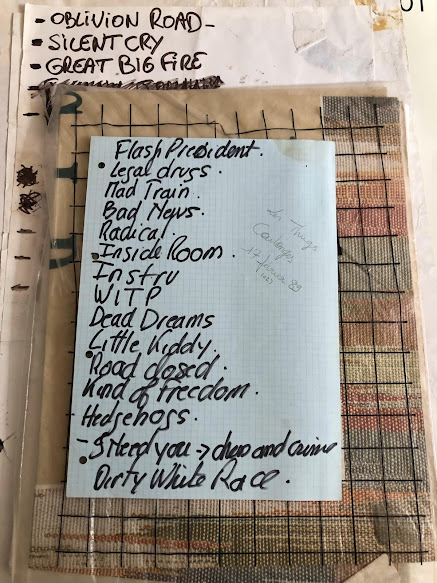 - OBLIVION ROAD -
- SILENT CRY
- GREAT BIG FIRE
Flash President.
Legal drugs.
Mad Train.
Bad News.
Radical.
Inside Room.
Instru
WITP
Dead Dreams
Little Kiddy.
Road closed.
Kind of Freedom.
Hedgehogs.
- I Need you -> and
Dirty White Race.
Things
17 89